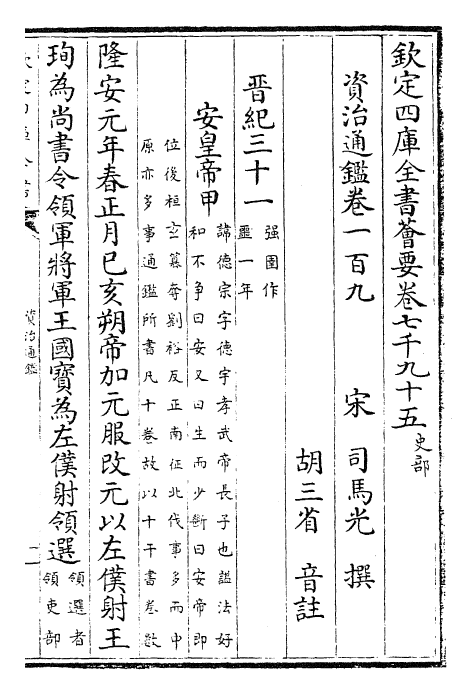 欽定四庫全書薈要卷七千九十五 史部
資治通鑑卷一百九
宋 司馬光 撰
胡三省 音註
晉紀三十一 强圉作
噩一年
安皇帝甲 諱德宗字德宗孝武帝長子也諡法好
和不爭曰安又曰生而少斷曰安帝即
位後桓玄簒奪劉裕反正南征北伐事多而中
原亦多事通鑑所書凡十卷故以十干書卷數
隆安元年春正月己亥朔帝加元服改元以左僕射王
珣為尚書令領軍將軍王國寶為左僕射領選 領選者
領吏部
資治通鑑